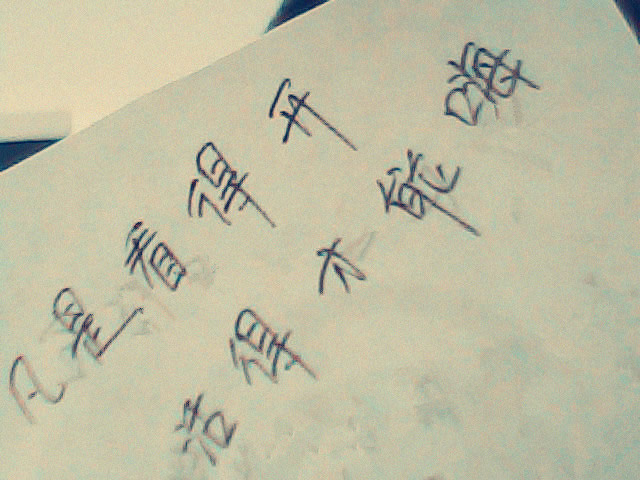 凡是看得开
活得才能嗨